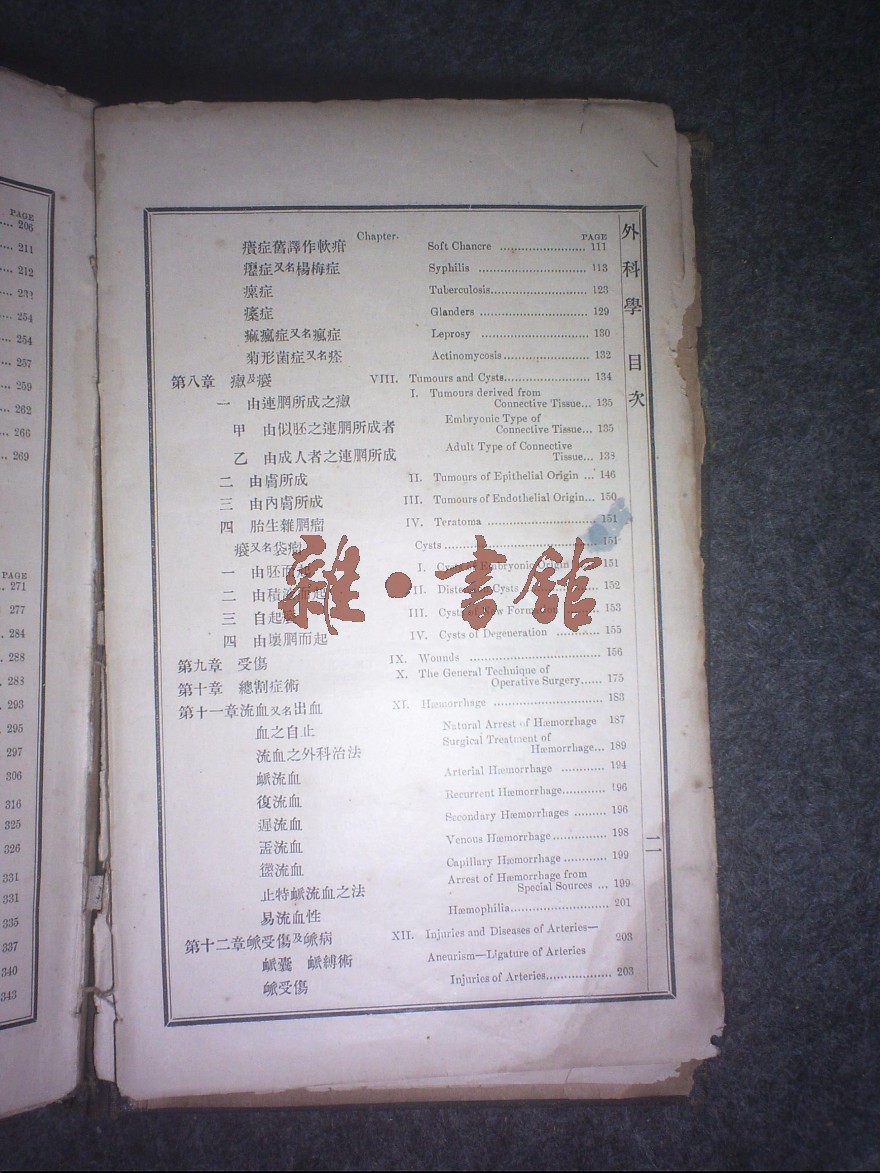 PAGE
206
211
212
232
254
254
257
259
262
266
269
PAGE
271
277
284
288
288
293
295
297
306
316
325
326
331
331
335
337
340
343
外科學 目次
二
Chapter. PAGE
症舊譯作軟疳 Soft Chancre 111
症又名楊梅症 Syphilis 113
症 Tuberculosis 123
症 Glanders 129
痲瘋症又名瘋症 Leprosy 130
菊形菌症又名 Actinomycosis 132
第八章 及 VIII. Tumours and Cysts 134
一 由連膶所成之 I. Tumours derived from
Connective Tissue... 135
甲 由似胚之連膶所成者 Embryonic Type of
Connective Tissue... 135
乙 由成人者之連膶所成 Adult Type of Connective
Tissue... 138
二 由膚所成 II. Tumours of Epithelial Origin ... 146
三 由內膚所成 III. Tumours of Endothelial Origin... 150
四 胎生雜膶瘤 IV. Teratoma 151
又名袋瘤 Cysts 151
一 由胚而起 I. Cysts of Embryonic Origin 151
二 由積而起 II. Distension Cysts 152
三 自起 III. Cysts of New Formation 153
四 由壞膶而起 IV. Cysts of Degeneration 155
第九章 受傷 IX. Wounds 156
第十章 總割症術 X. The General Technique of
Operative Surgery 175
第十一章流血又名出血 XI. Hæmorrhage 183
血之自止 Natural Arrest of Hæmorrhage 187
流血之外科治法 Surgical Treatment of
Hæmorrhage... 189
流血 Arterial Hæmorrhage 194
復流血 Recurrent Hæmorrhage 196
遲流血 Secondary Hæmorrhages 196
流血 Venous Hæmorrhage 198
流血 Capillary Hæmorrhage 199
止特流血之法 Arrest of Hæmorrhage from
Special Sources ... 199
易流血性 Hæmophilia 201
第十二章受傷及病 XII. Injuries and Diseases of Arteries—
囊 縛術 Aneurism—Ligature of Arteries 203
受傷 Injuries of Arteries 203
雜·書館